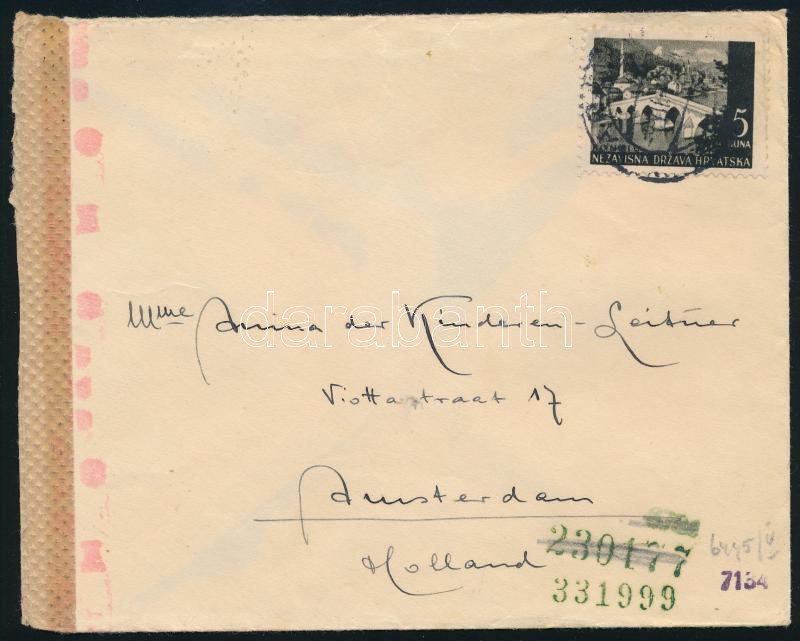 5
KUNA
NEZAVISNA DRŽAVA HRVATSKA
Mme Anina der Kinderen-Leitner
Viottastraat 17
Amsterdam
Holland
230177
331999
7134
darabanth